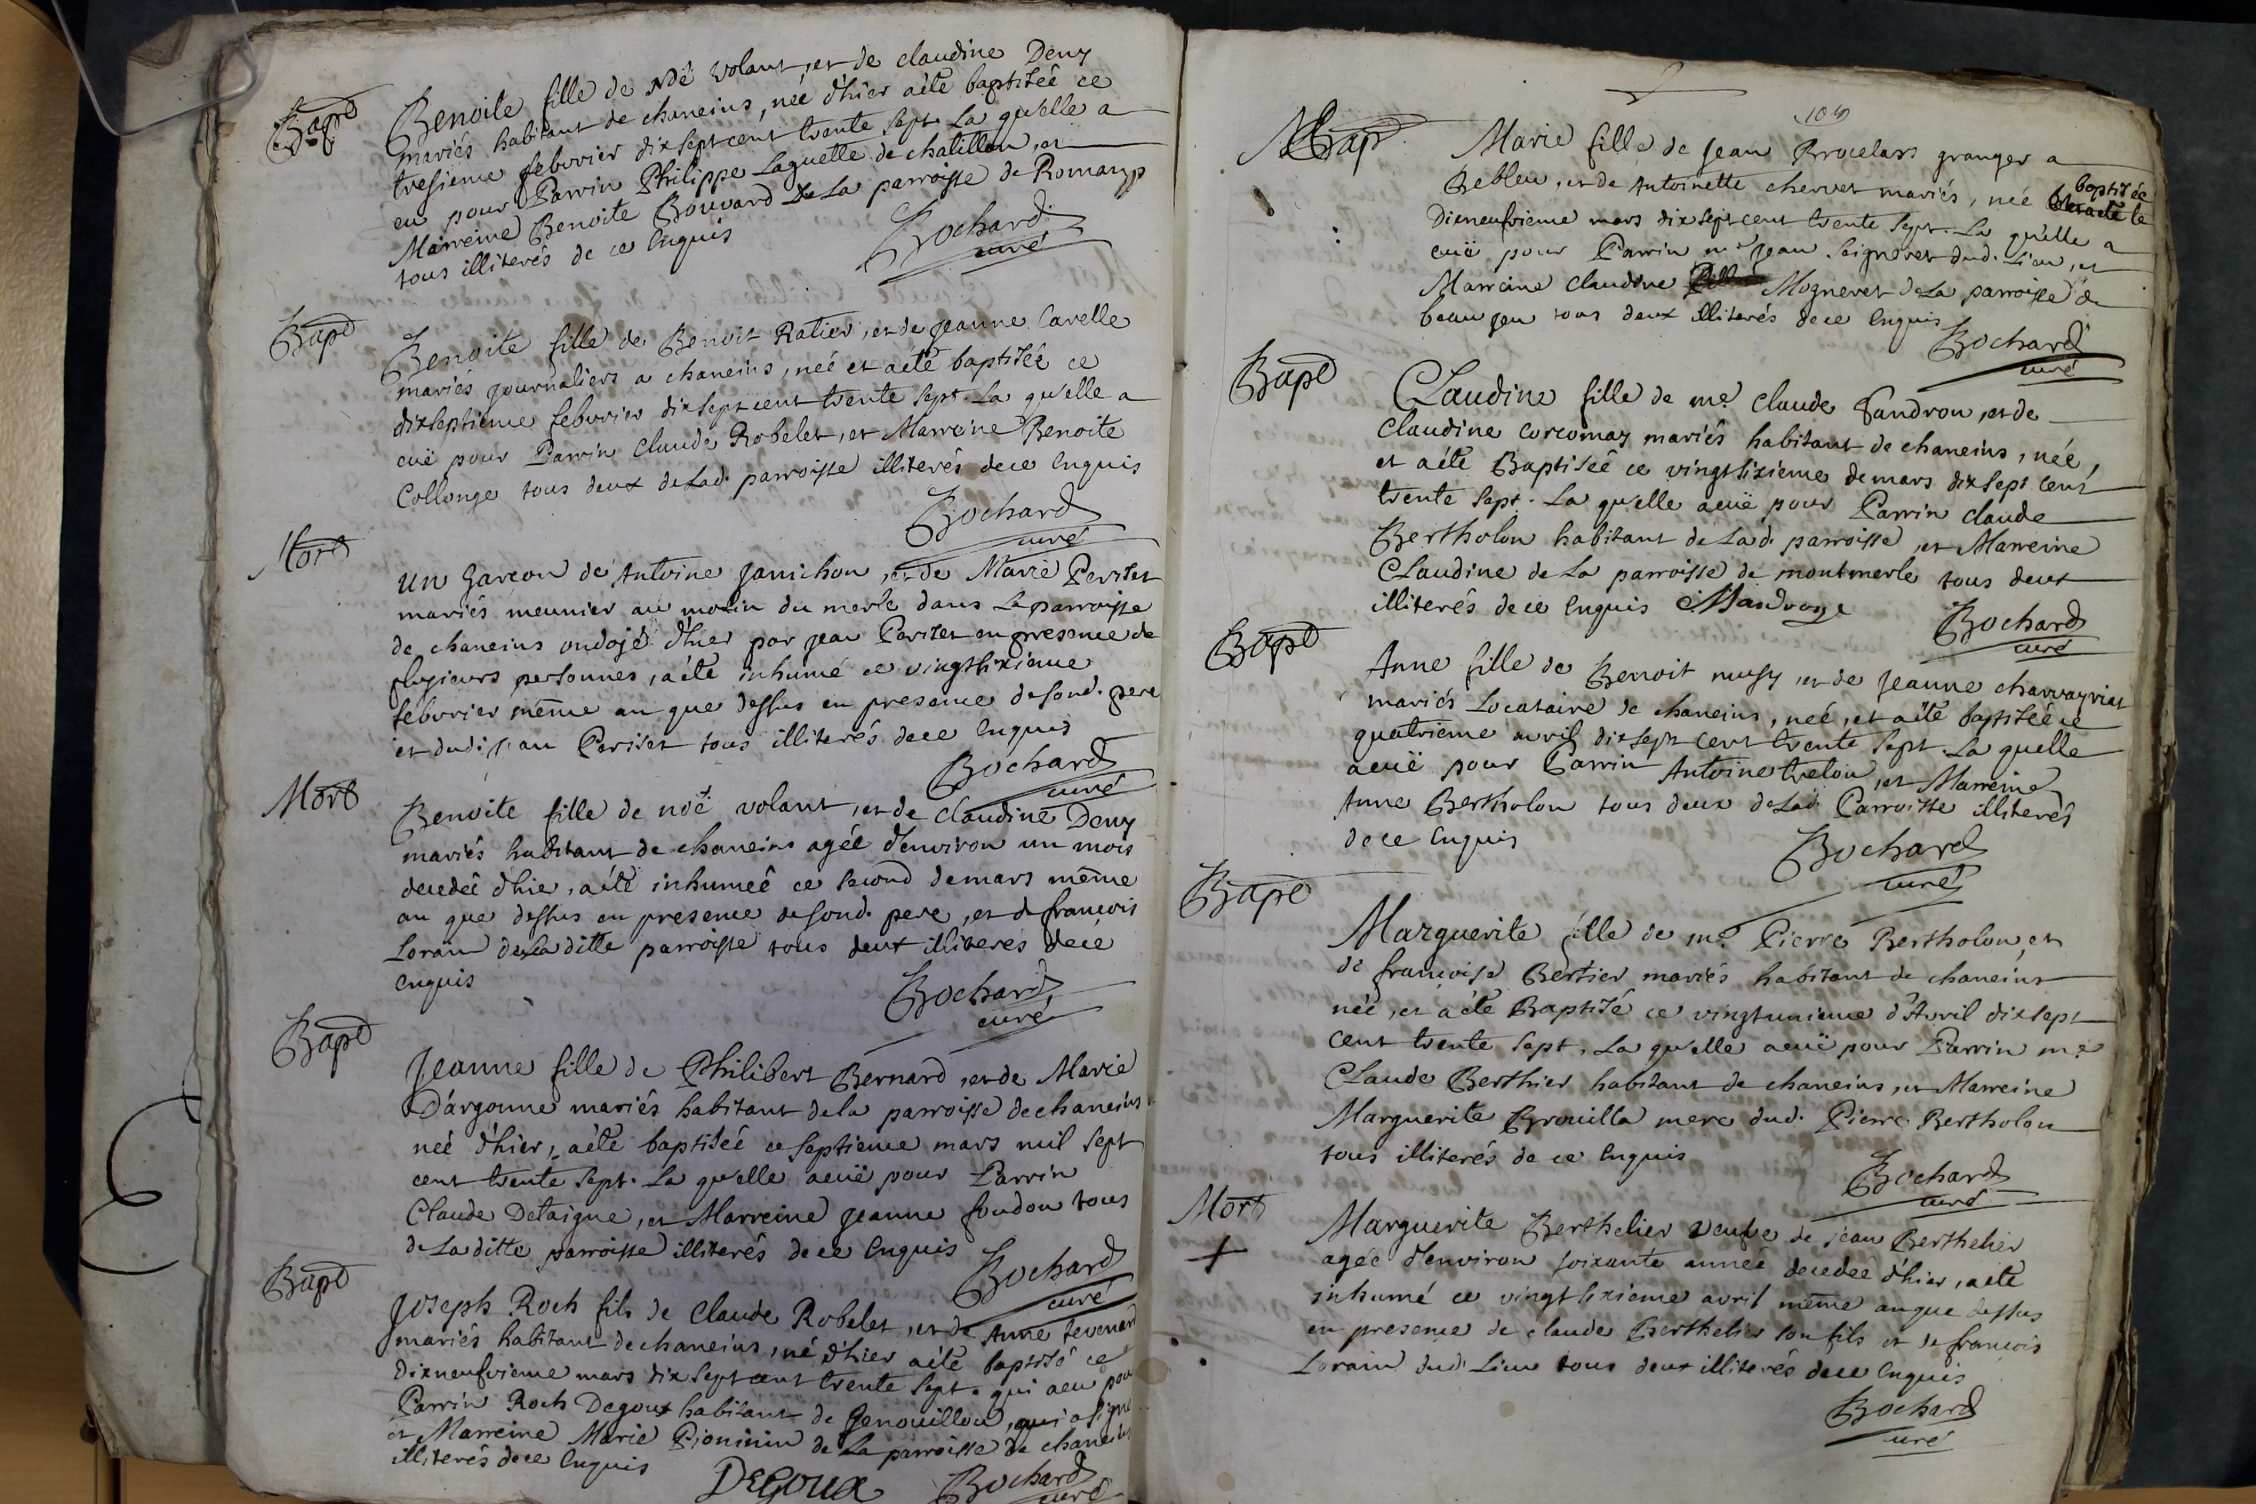 Bapt
Benoite fille de Noë volant, et de claudine Deny
mariés habitant de chaneins, neé d'hier aété baptiseé ce
tresieme febvrier dixsept cent trente sept. La qu'elle a
eu pour Parrin Philippe Laguette de chatillon, et
Marreine Benoite Bouvard De La parroisse de Romans
tous illiterés de ce Enquis
Bochard
curé
Bapt
Benoite fille de Benoit Ratier, et de Jeanne Carelle
mariés journaliers a chaneins, neé et aété baptiseé ce
dixseptieme febvrier dixsept cent trente sept. La qu'elle a
euë pour Parrin Claude Robelet, et Marreine Benoite
Collonge tous deux de Lad. parroisse illiterés dece Enquis
Bochard
curé
Mort
un Garçon de Antoine Janichon, et de Marie Periset
mariés meunier au molin du merle dans La parroisse
de chaneins ondojé d'hier par jean Periset en presence de
plusieurs personnes, aété inhumé ce vingtsixieme
febvrier même an que dessus en presence de sond. pere
et dudi jean Periset tous illiterés dece Enquis
Bochard
curé
Mort
Benoite fille de noë volant, et de Claudine Deny
mariés habitant de chaneins agéé d'environ un mois
decedeé d'hie, aété inhumeé ce second demars même
an que dessus en presence de sond. pere, et d françois
Lorain de La ditte parroisse tous deux illiteres dece
enquis
Bochard
curé
Bapt
Jeanne fille de Philibert Bernard, et de Marie
D'argonne mariés habitant dela parroisse de chaneins
neé d'hier, aété baptiseé ce septieme mars mil sept
cent trente sept. La qu'elle aeuë pour Parrin
Claude Detaigne, et Marreine Jeanne fondon tous
de La ditte parroisse illiterés de ce Enquis
Bochard
curé
Bapt
Joseph Roch fils de Claude Robelet, et de Anne Tevenard
mariés habitant de chaneins, né d'hier aété baptisé ce
dixneufvieme mars dix sept cent trente sept. qui aeu pour
Parrin Roch Degoux habitant de Genouilleu, qui a signé
et Marreine Marie Pioninin de La parroisse de chaneins
illiterés dece Enquis
DEGOUX
Bochard
curé
Bap
Marie fille de jean Brocelars granger a
Bebleu, et de Antoinette chervet mariés, neé baptiseé le
Dixneufvieme mars dix sept cent trente sept. La qu'elle a
euë pour Parrin me jean Seigneret dud. Lieu, et
Marreine Claudine Mogneret de La parroisse de
beaujeu tous deux illiterés dece Enquis
Bochard
curé
Bapt
Claudine fille de me. Claude Gandron, et de
Claudine Corcomay mariés habitant de chaneins, néé,
et aété Baptiseé ce vingtsixieme demars dix sept cent
trente sept. La qu'elle aeuë pour Parrin claude
Bertholon habitant de Lad. parroisse, et Marreine
Claudine de La parroisse de montmerle tous deux
illiterés dece Enquis
Bochard
curé
Bapt
Anne fille de Benoit musy et de Jeanne charvayriat
mariés Locataire de chaneins, neé, et aété baptiseé ce
quatrieme avril dixsept cent trente sept. La quelle
aeuë pour Parrin Antoine trelon, et Marreine
Anne Bertholon tous deux de Lad. Parroisse illiterés
dece Enquis
Bochard
curé
Bapt
Marguerite fille de me. Pierre Bertholon, et
de françoise Bertier mariés habitant de chaneins
néé, et aété Baptisé ce vingtunieme d'Avril dixsept
cent trente sept. La qu'elle aeuë pour Parrin me.
Claude Berthier habitant de chaneins, et Marreine
Marguerite Brouilla mere dud. Pierre Bertholon
tous illiterés de ce Enquis
Bochard
curé
Mort
Marguerite Berthelier veufve de jean Berthelier
agéé d'environ soixante anneé decedeé d'hier, aété
inhumé ce vingtsixieme avril même anque dessus
en presence de claude Berthelier son fils et de françois
Lorain dud. Lieu tous deux illiterés dece Enquis
Bochard
curé